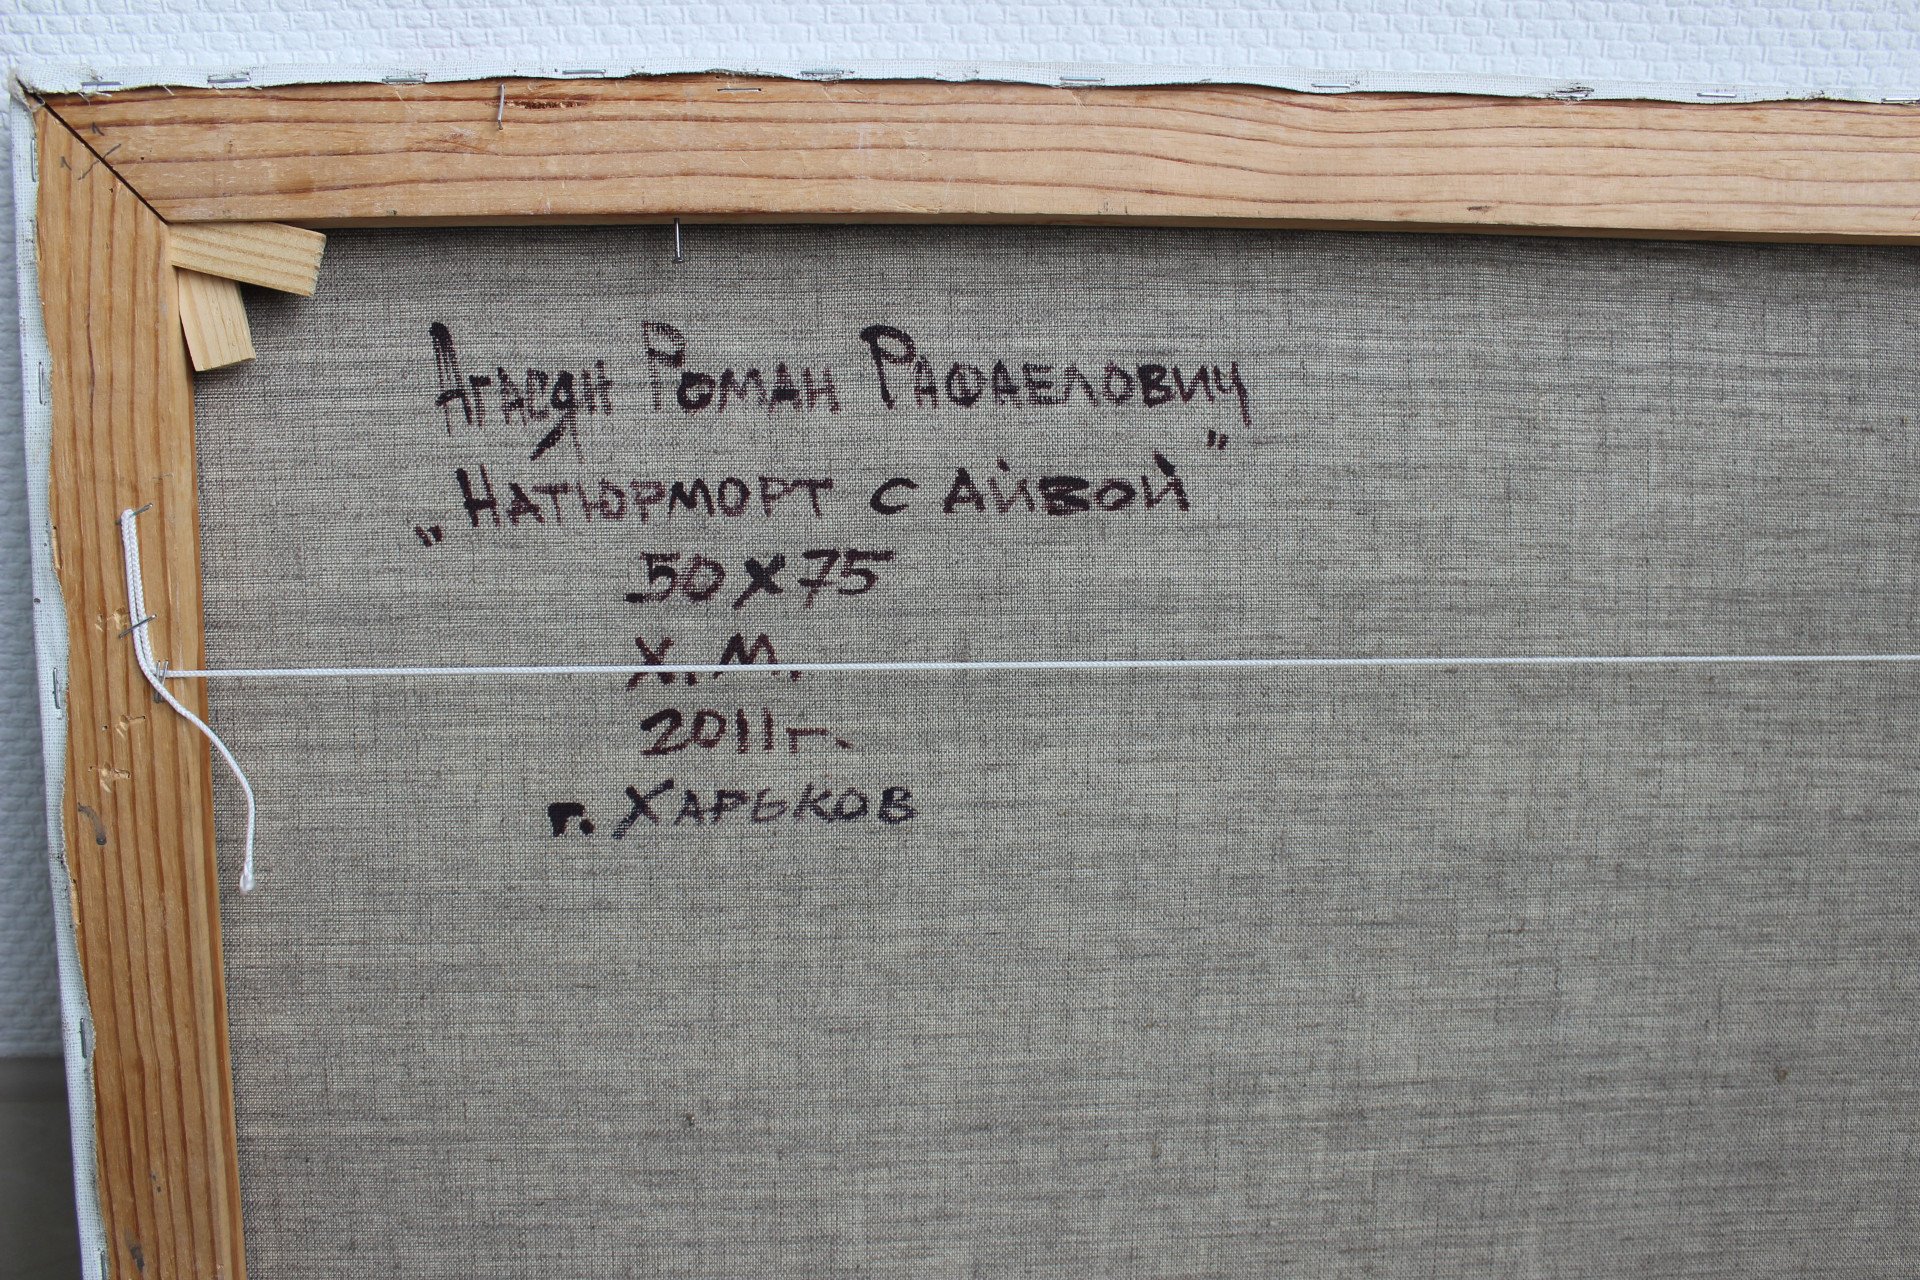 Агасян Роман Рафаелович
„Натюрморт с айвой”
50х75
х.м.
2011г.
г. Харьков